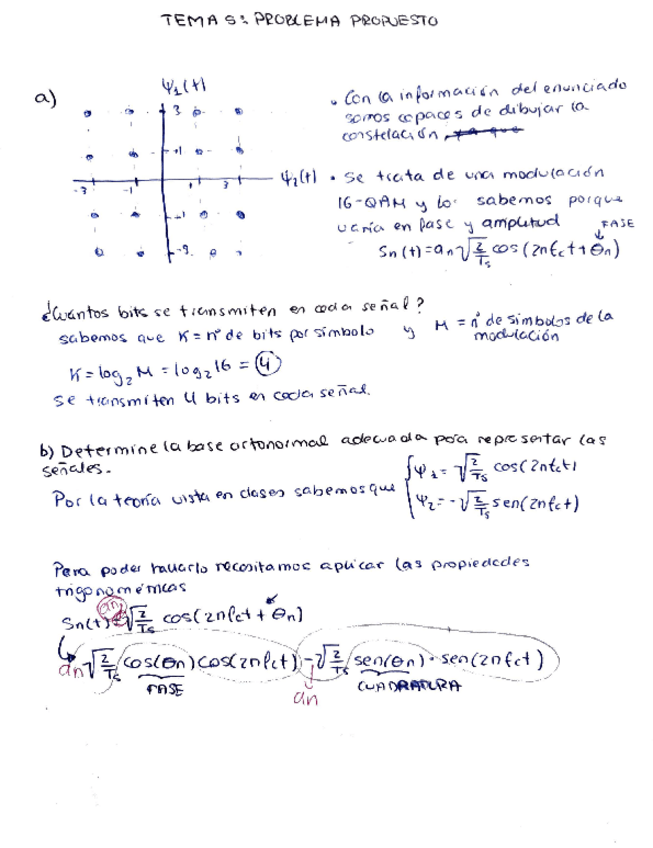 TEMA 5: PROBLEMA PROPUESTO
a)
Ψ1(t)
3
+1
-3
-1
+1
3
Ψ2(t)
-1
-3
• Con la información del enunciado
somos capaces de dibujar la
constelación,
• Se trata de una modulación
16-QAM y lo sabemos porque
varía en fase y amplitud
FASE
Sn(t) = an √(2/Ts) cos(2πfct + θn)
¿Cuántos bits se transmiten en cada señal?
sabemos que K = nº de bits por símbolo y M = nº de símbolos de la
modulación
K = log2 M = log2 16 = 4
Se transmiten 4 bits en cada señal.
b) Determine la base ortonormal adecuada para representar las
señales.
Por la teoría vista en clases sabemos que { Ψ1 = √(2/Ts) cos(2πfct)
Ψ2 = -√(2/Ts) sen(2πfct)
Para poder hallarlo necesitamos aplicar las propiedades
trigonométricas
an
Sn(t) = √(2/Ts) cos(2πfct + θn)
an √(2/Ts) cos(θn) cos(2πfct) - √(2/Ts) sen(θn) · sen(2πfct)
FASE
an
CUADRATURA